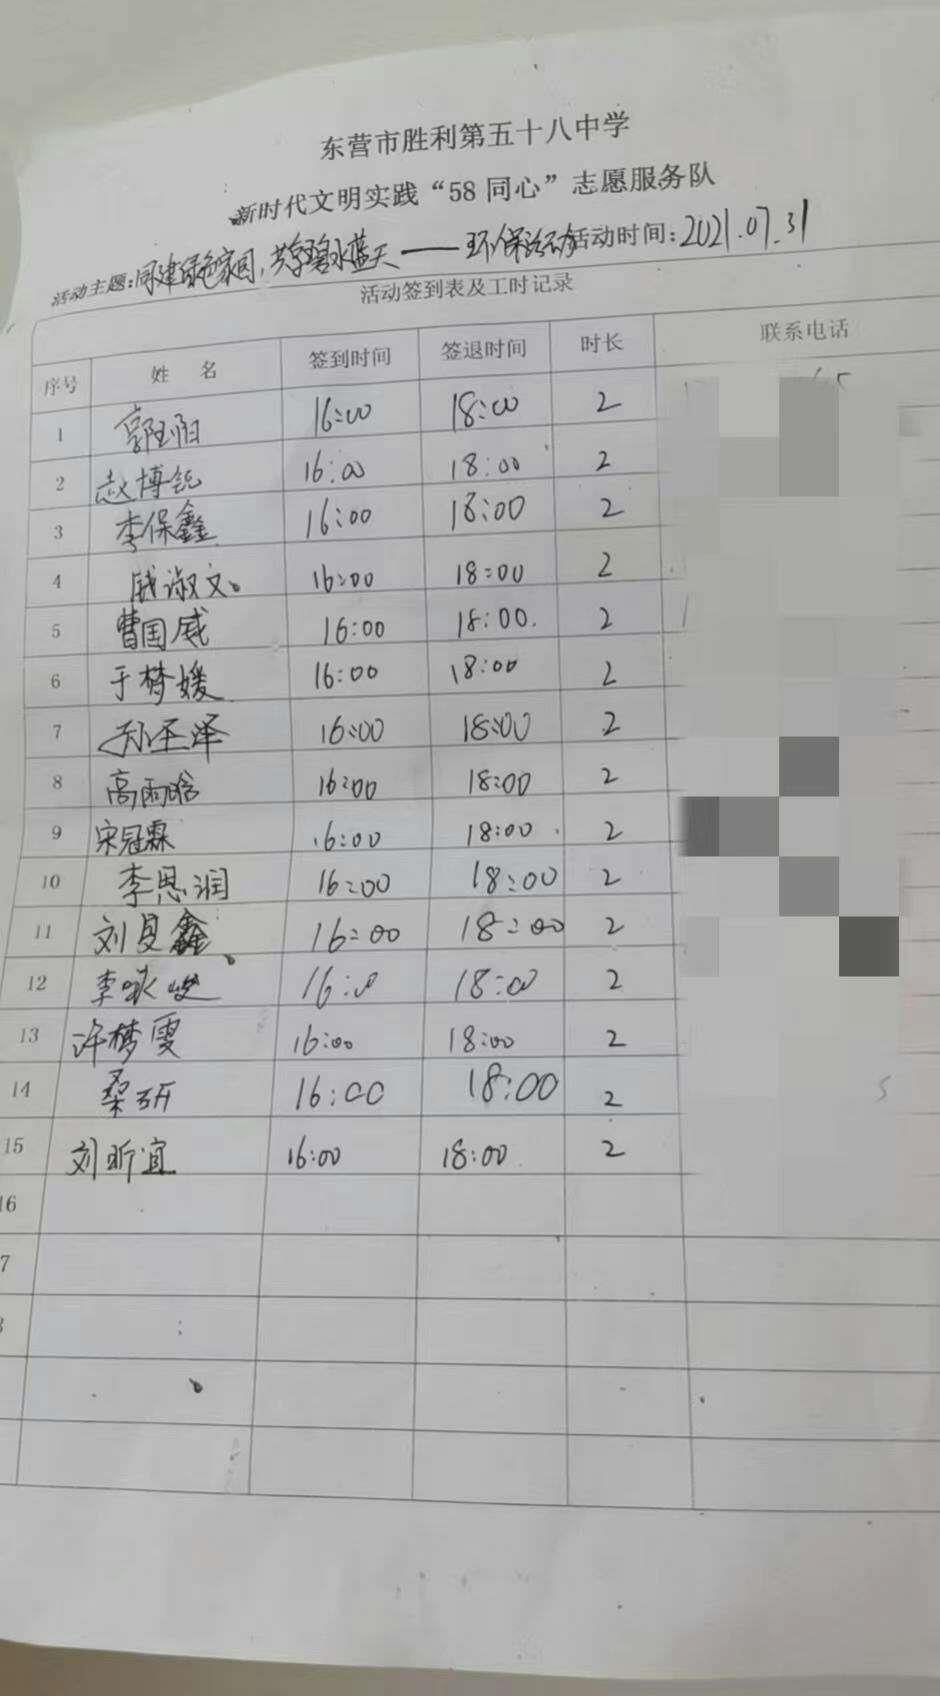 东营市胜利第五十八中学
新时代文明实践“58同心”志愿服务队
活动主题:同建绿色家园,共享碧水蓝天——环保活动 活动时间:2021.07.31
活动签到表及工时记录
序号 姓 名 签到时间 签退时间 时长 联系电话
1 郭 阳 16:00 18:00 2
2 赵博 16:00 18:00 2
3 李保鑫 16:00 18:00 2
4 淑文 16:00 18:00 2
5 曹国威 16:00 18:00 2
6 于梦媛 16:00 18:00 2
7 孙圣泽 16:00 18:00 2
8 高雨晗 16:00 18:00 2
9 宋冠霖 16:00 18:00 2
10 李恩润 16:00 18:00 2
11 刘 鑫 16:00 18:00 2
12 李咏 16:00 18:00 2
13 许梦雯 16:00 18:00 2
14 桑研 16:00 18:00 2
15 刘昕宜 16:00 18:00 2
16
7